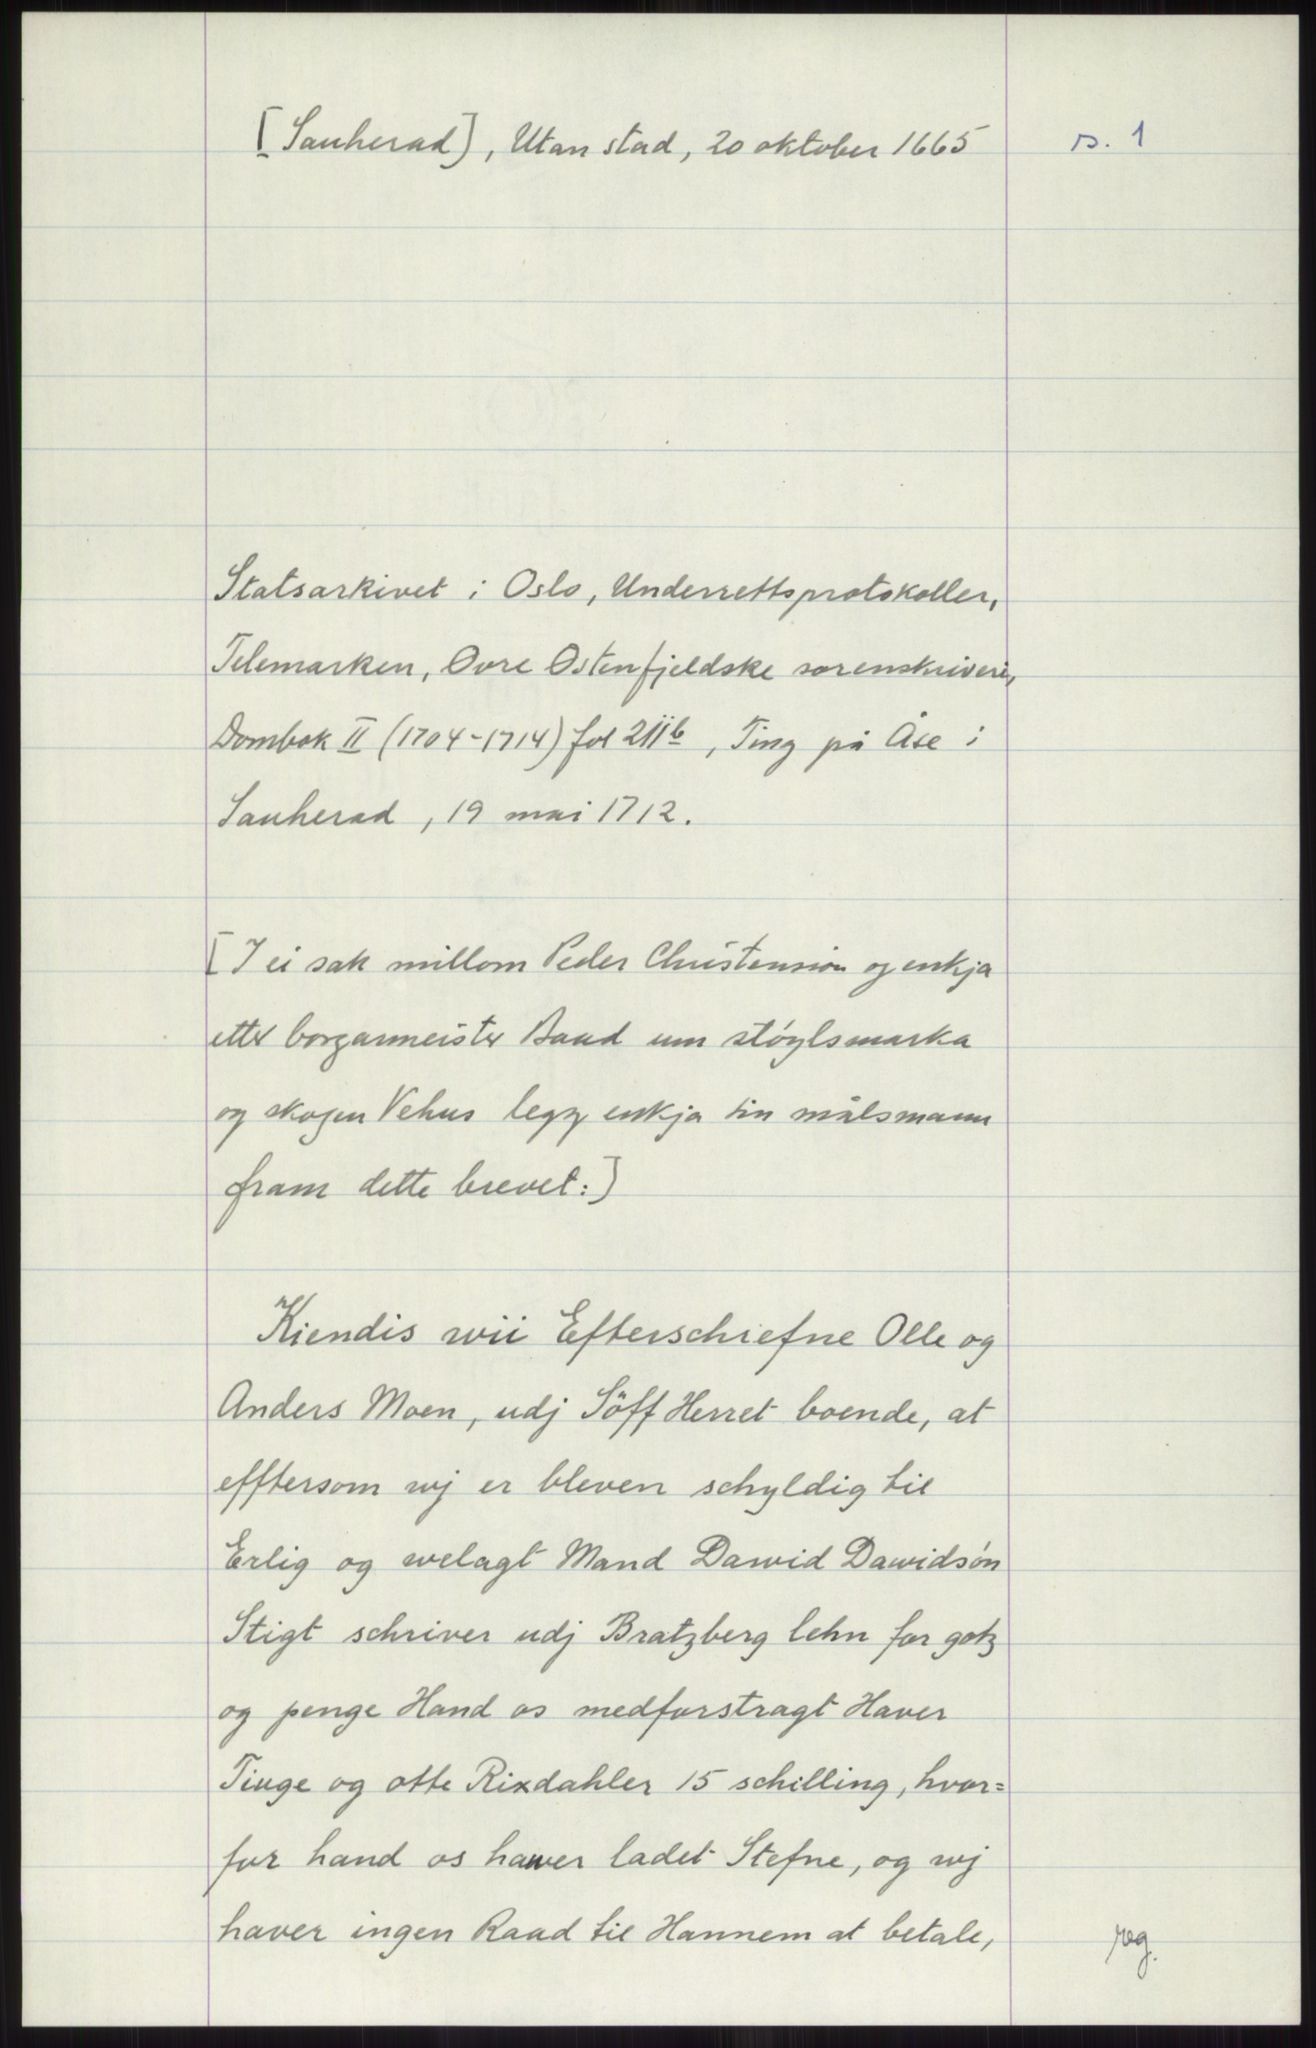 [Sauherad], Utan stad, 20 oktober 1665
s. 1
Statsarkivet i Oslo, Underrettsprotokoller,
Telemarken, Øvre Østenfjeldske sorenskriveri,
Dombok II (1704-1714) fol 211b, Ting på Åse i
Sauherad, 19 mai 1712.
[I ei sak millom Peder Christensiøn og enkja
etter borgarmeister Baad um støylsmarka
og skogen Vehus legg enkja sin målsmann
fram dette brevet:]
Kiendis wii Efterschrefne Olle og
Anders Moen, udj Söff Herret boende, at
efftersom wj er bleven schyldig til
Erlig og welagt Mand Dawid Dawidsøn
Stigt schriver udj Bratzberg lehn for gotz
og penge Hand os medforstragt Haver
Tiuge og otte Rixdahler 15 schilling, hvor=
for hand os hawer ladet Stefne, og wj
haver ingen Raad til Hannem at betale,
reg.